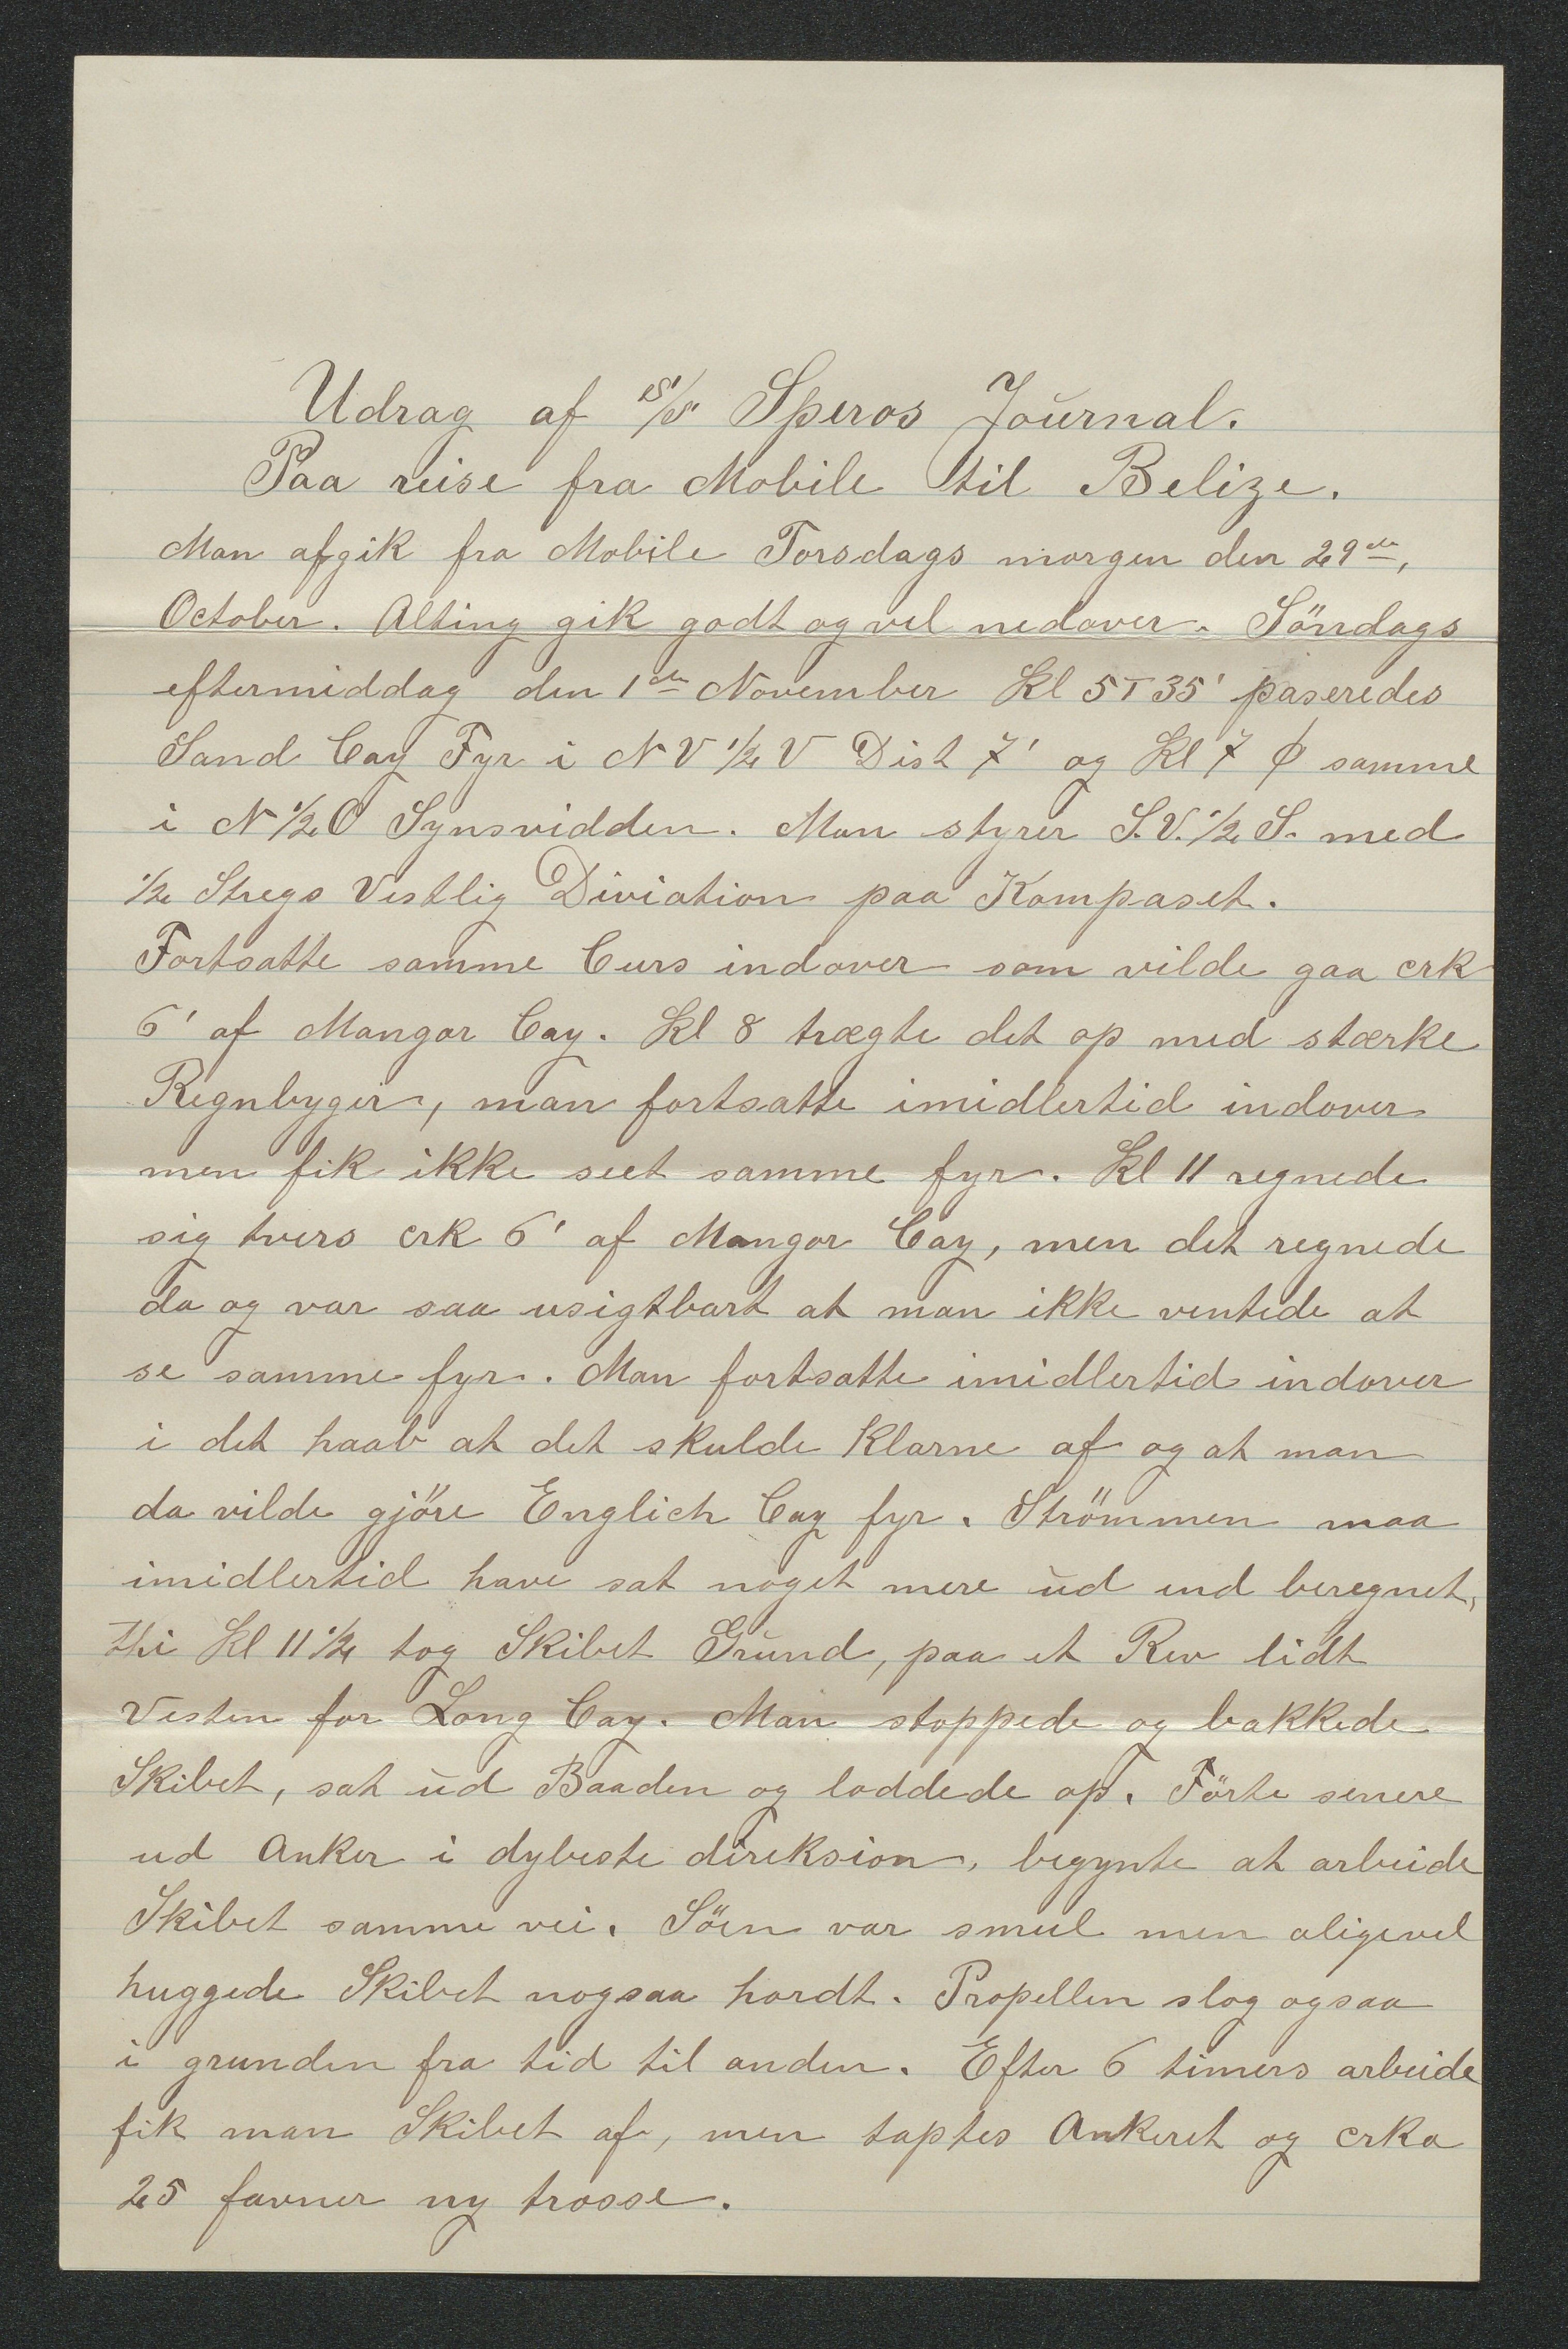 Udrag af S/S Speros Journal.
Paa reise fra Mobile til Belize.
Man afgik fra Mobile Torsdags morgen den 29de,
October. Alting gik godt og vel nedover. Söndags
eftermiddag den 1ste November Kl 5T 35' paseredes
Sand Cay Fyr i NV 1/2 V Dist 7' og Kl 7 φ samme
i N 1/2 O Synsvidden. Man styrer S.V. 1/2 S. med
1/2 Stregs Vestlig Diviation paa Kompaset.
Fortsatte samme Curs indover som vilde gaa crk
6' af Mangor Cay. Kl 8 trægte det op med stærke
Regnbyger, man fortsatte imidlertid indover
men fik ikke seet samme fyr. Kl 11 regnede
sig tvers crk 6' af Mangor Cay, men det regnede
da og var saa usigtbart at man ikke ventede at
se samme fyr. Man fortsatte imidlertid indover
i det haab at det skulde klarne af og at man
da vilde gjöre Englich Cay fyr. Strömmen maa
imidlertid have sat noget mere ud end beregnet,
thi Kl 11 1/2 tog Skibet Grund, paa et Rev lidt
Vesten for Long Cay. Man stoppede og bakkede
Skibet, sat ud Baaden og loddede op. Förte senere
ud Anker i dybeste direksion, begynte at arbeide
Skibet samme vei. Söen var smul men aligevel
huggede Skibet nogsaa hardt. Propellen slog ogsaa
i grunden fra tid til anden. Efter 6 timers arbeide
fik man Skibet af, men taptes Ankeret og crka
25 favner ny trosse.